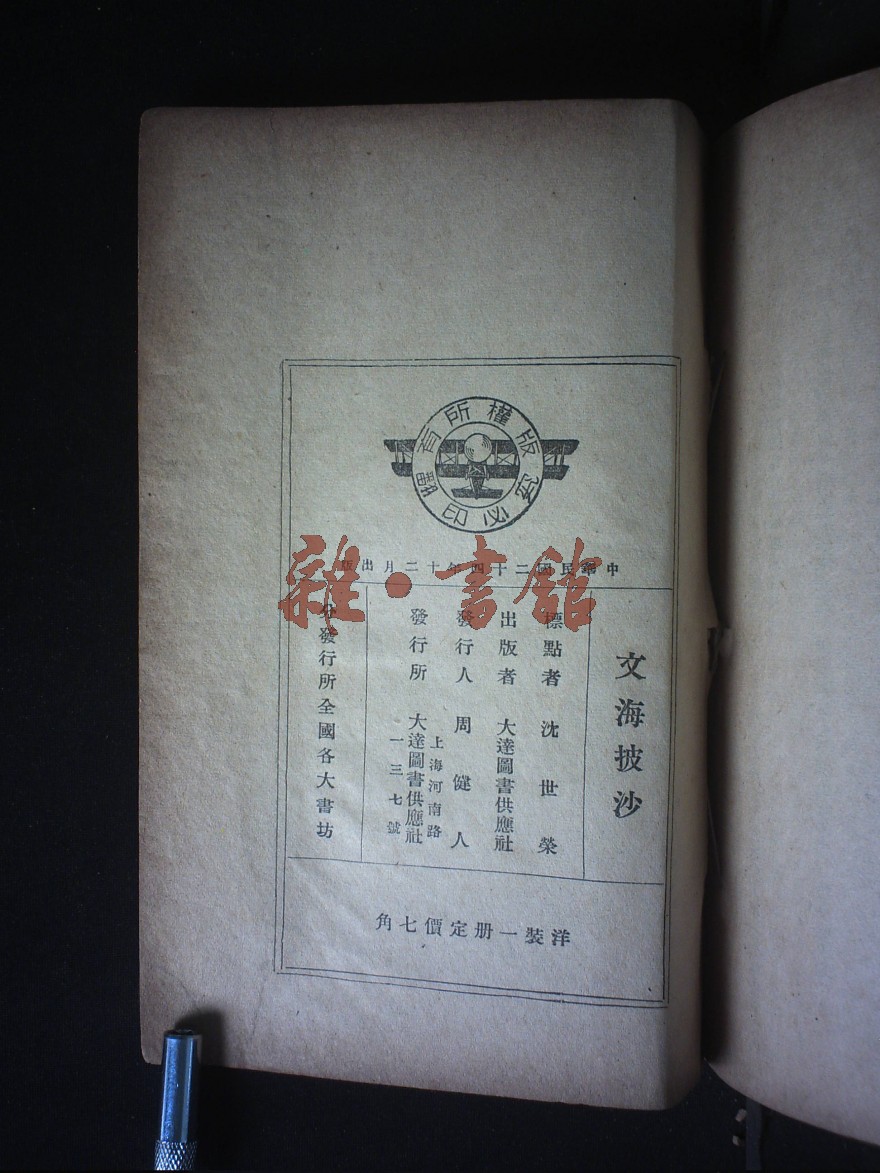 版權所有
翻印必究
中華民國二十四年十二月出版
文海披沙
標點者 沈世榮
出版者 大達圖書供應社
發行人 周健人
發行所 大達圖書供應社
上海河南路
一三七號
分發行所全國各大書坊
洋裝一册定價七角
雜·書館